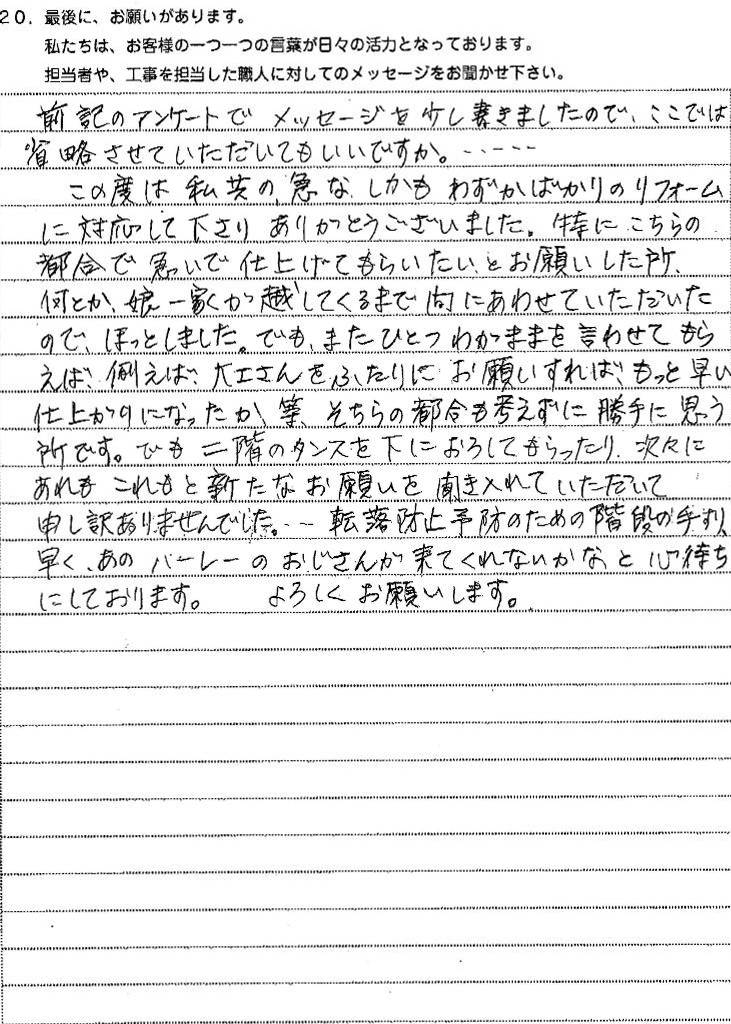 20. 最後に、お願いがあります。
私たちは、お客様の一つ一つの言葉が日々の活力となっております。
担当者や、工事を担当した職人に対してのメッセージをお聞かせ下さい。
前記のアンケートで メッセージを少し書きましたので、ここでは
省略させていただいてもいいですか。‥‥‥
この度は 私共の、急な、しかも わずかばかりのリフォーム
に対応して下さり ありがとうございました。特に こちらの
都合で 急いで 仕上げてもらいたい、とお願いした所、
何とか、娘一家が越してくるまで 間にあわせていただいた
ので、ほっとしました。でも、またひとつ わがままを 言わせて もら
えば、例えば、大工さんを ふたりに お願いすれば、もっと早い
仕上がりになったか、等、そちらの都合も考えずに 勝手に思う
所です。でも 二階のタンスを 下に おろしてもらったり、次々に
あれも これもと 新たなお願いを 聞き入れていただいて
申し訳ありませんでした。‥ 転落防止予防のための階段の手すり、
早く、あの バーレーの おじさんが 来てくれないかな、と 心待ち
にしております。 よろしく お願いします。